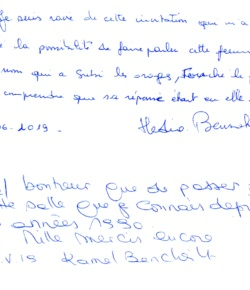 Je suis ravie de cette invitation que m'a
la possibilité de faire parler cette femme
qui a subi les orages,
comprendre que sa réponse était en elle
06.2019.
bonheur que de passer
salle que je connais dep
années 1990
Mille mercis encore
Kamel